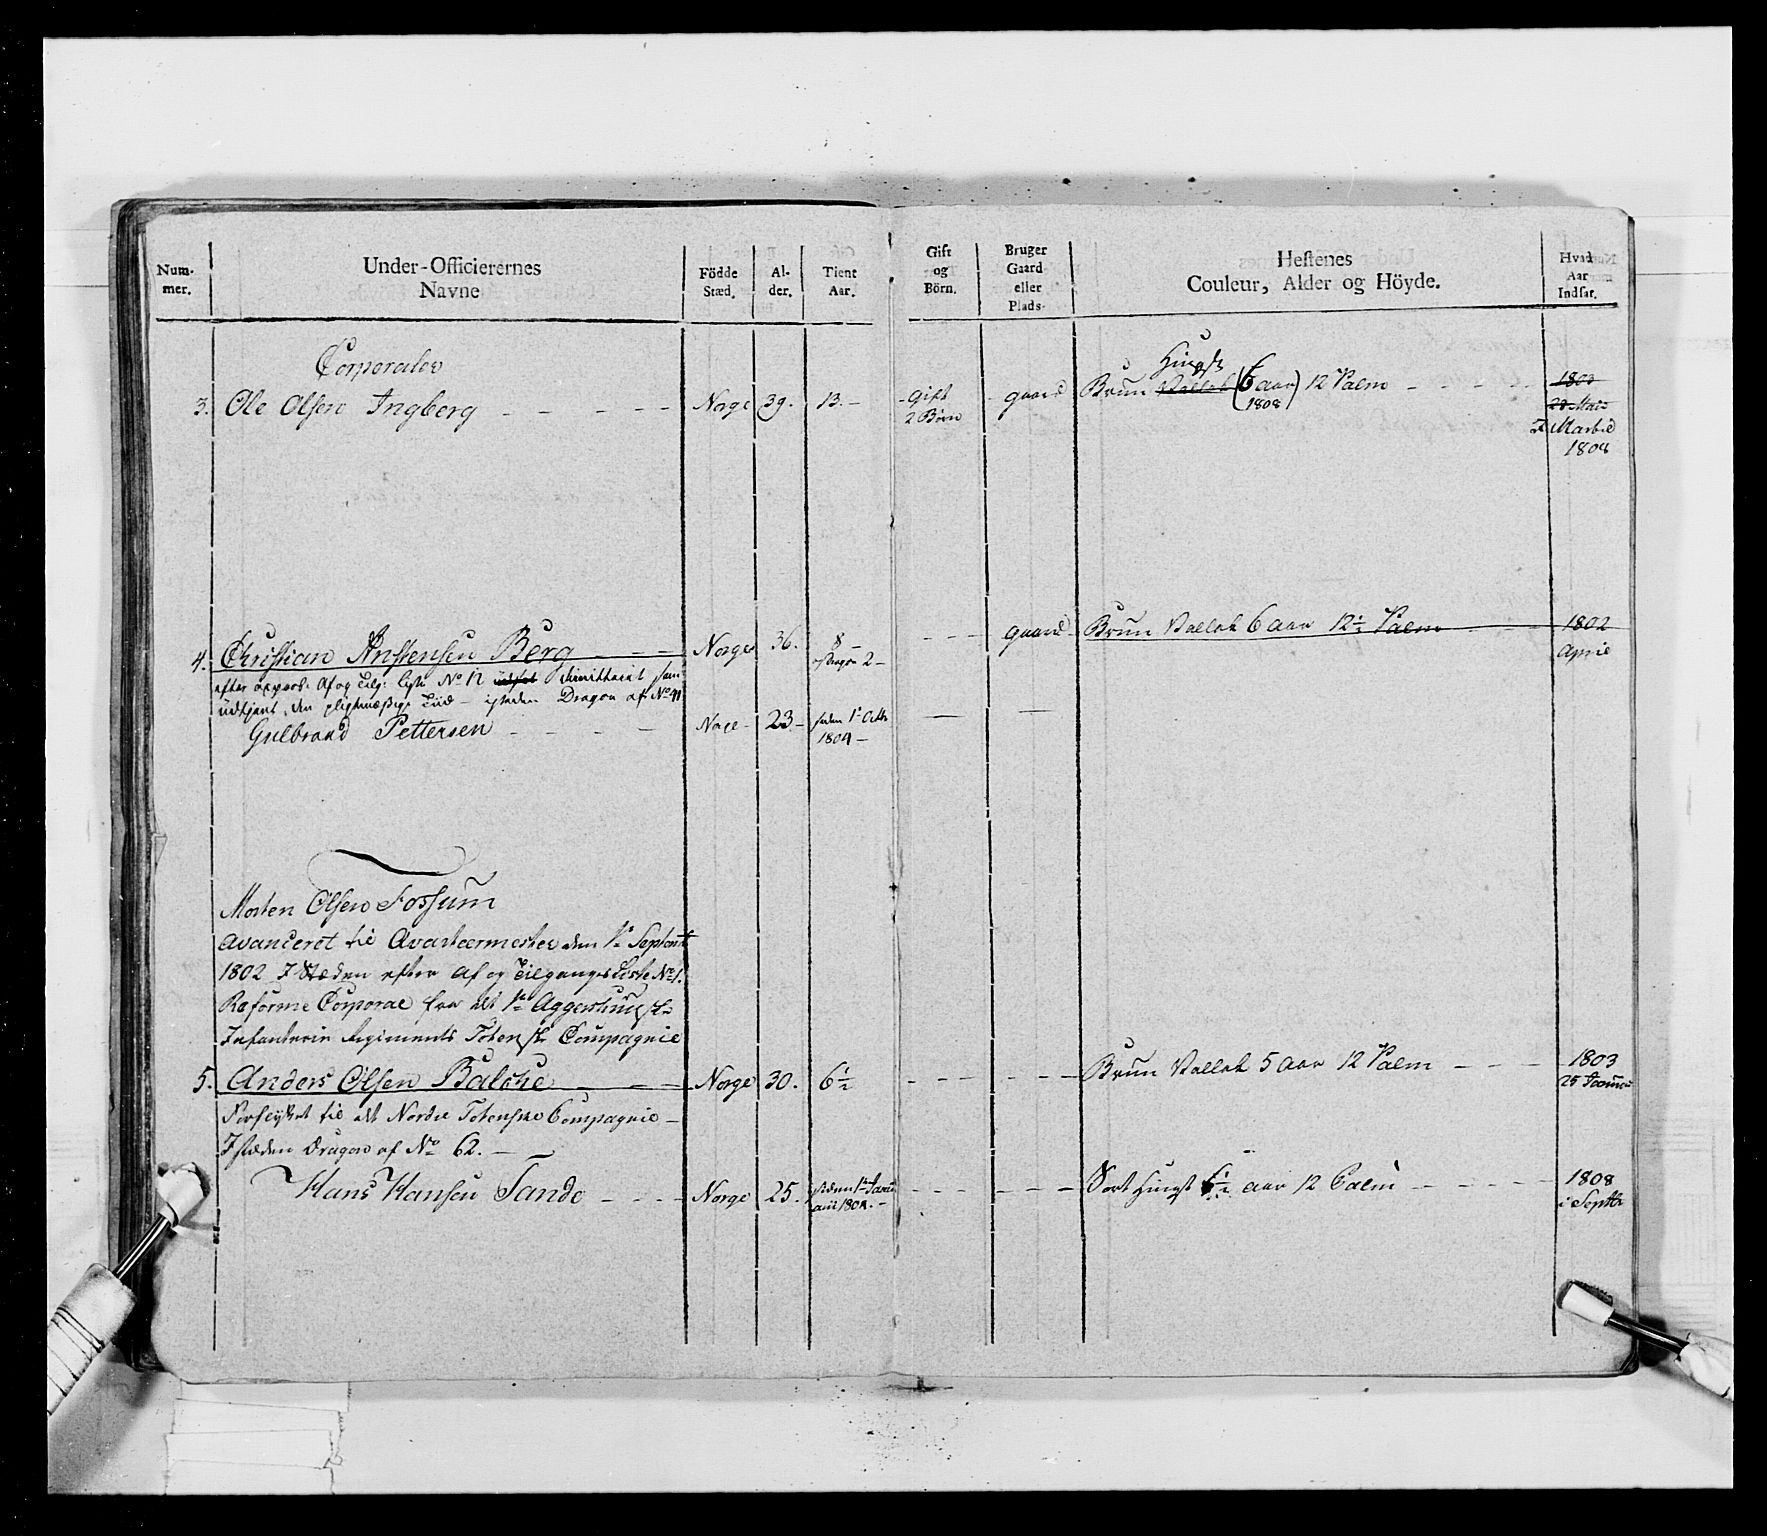 Num-
mer.
Under-Officierernes
Navne
Födde
Stæd.
Al-
der.
Tient
Aar.
Gift
og
Börn.
Bruger
Gaard
eller
Plads.
Hestenes
Couleur, Alder og Höyde.
Hvad
Aar
Indsat.
Corporaler
3. Ole Olsen Ingberg - - - - - Norge 39. 13. - Gift gaard Brun Vallak Hingst (6 aar) 12 Palm - - - - 1803
2 Börn 1808 28 Maii
7 Martii
1808
4. Christian Anstensen Berg - - - Norge 36. 8 - - - gaard Brun Vallak 6 aar 12½ Palm 1802
Dragon 2 - April
efter approb. Af og Tilg. Liste No 12 udsat dimitteret som
udtient den pligtmæssige Tiid - isteden Dragon af No 41
Gulbrand Pettersen - - - - Norge - 23 - siden 1te Octbr
1804 -
Morten Olsen Fossum
avanceret til Qvarteermester den 1te Septembr
1802 I Stæden efter Af og Tilgangs Liste No 1.
Reforme Corporal fra det 1te Aggershuusiske
Infanterie Regiments Totenske Compagnie
5. Anders Olsen Balche - - - Norge 30. 6½ - - - - - - Brun Vallak 5 aar 12 Palm - - - 1803
25 Januar
Forflyttet til det Nordre Totenske Compagnie -
I stæden Dragon af No 62. -
Hans Hansen Sande - - - - Norge 25. siden 1te Janu - - - - - - - Sort Hingst 6½ aar 12 Palm - - - - - 1808
arii 1802. - i Septbr